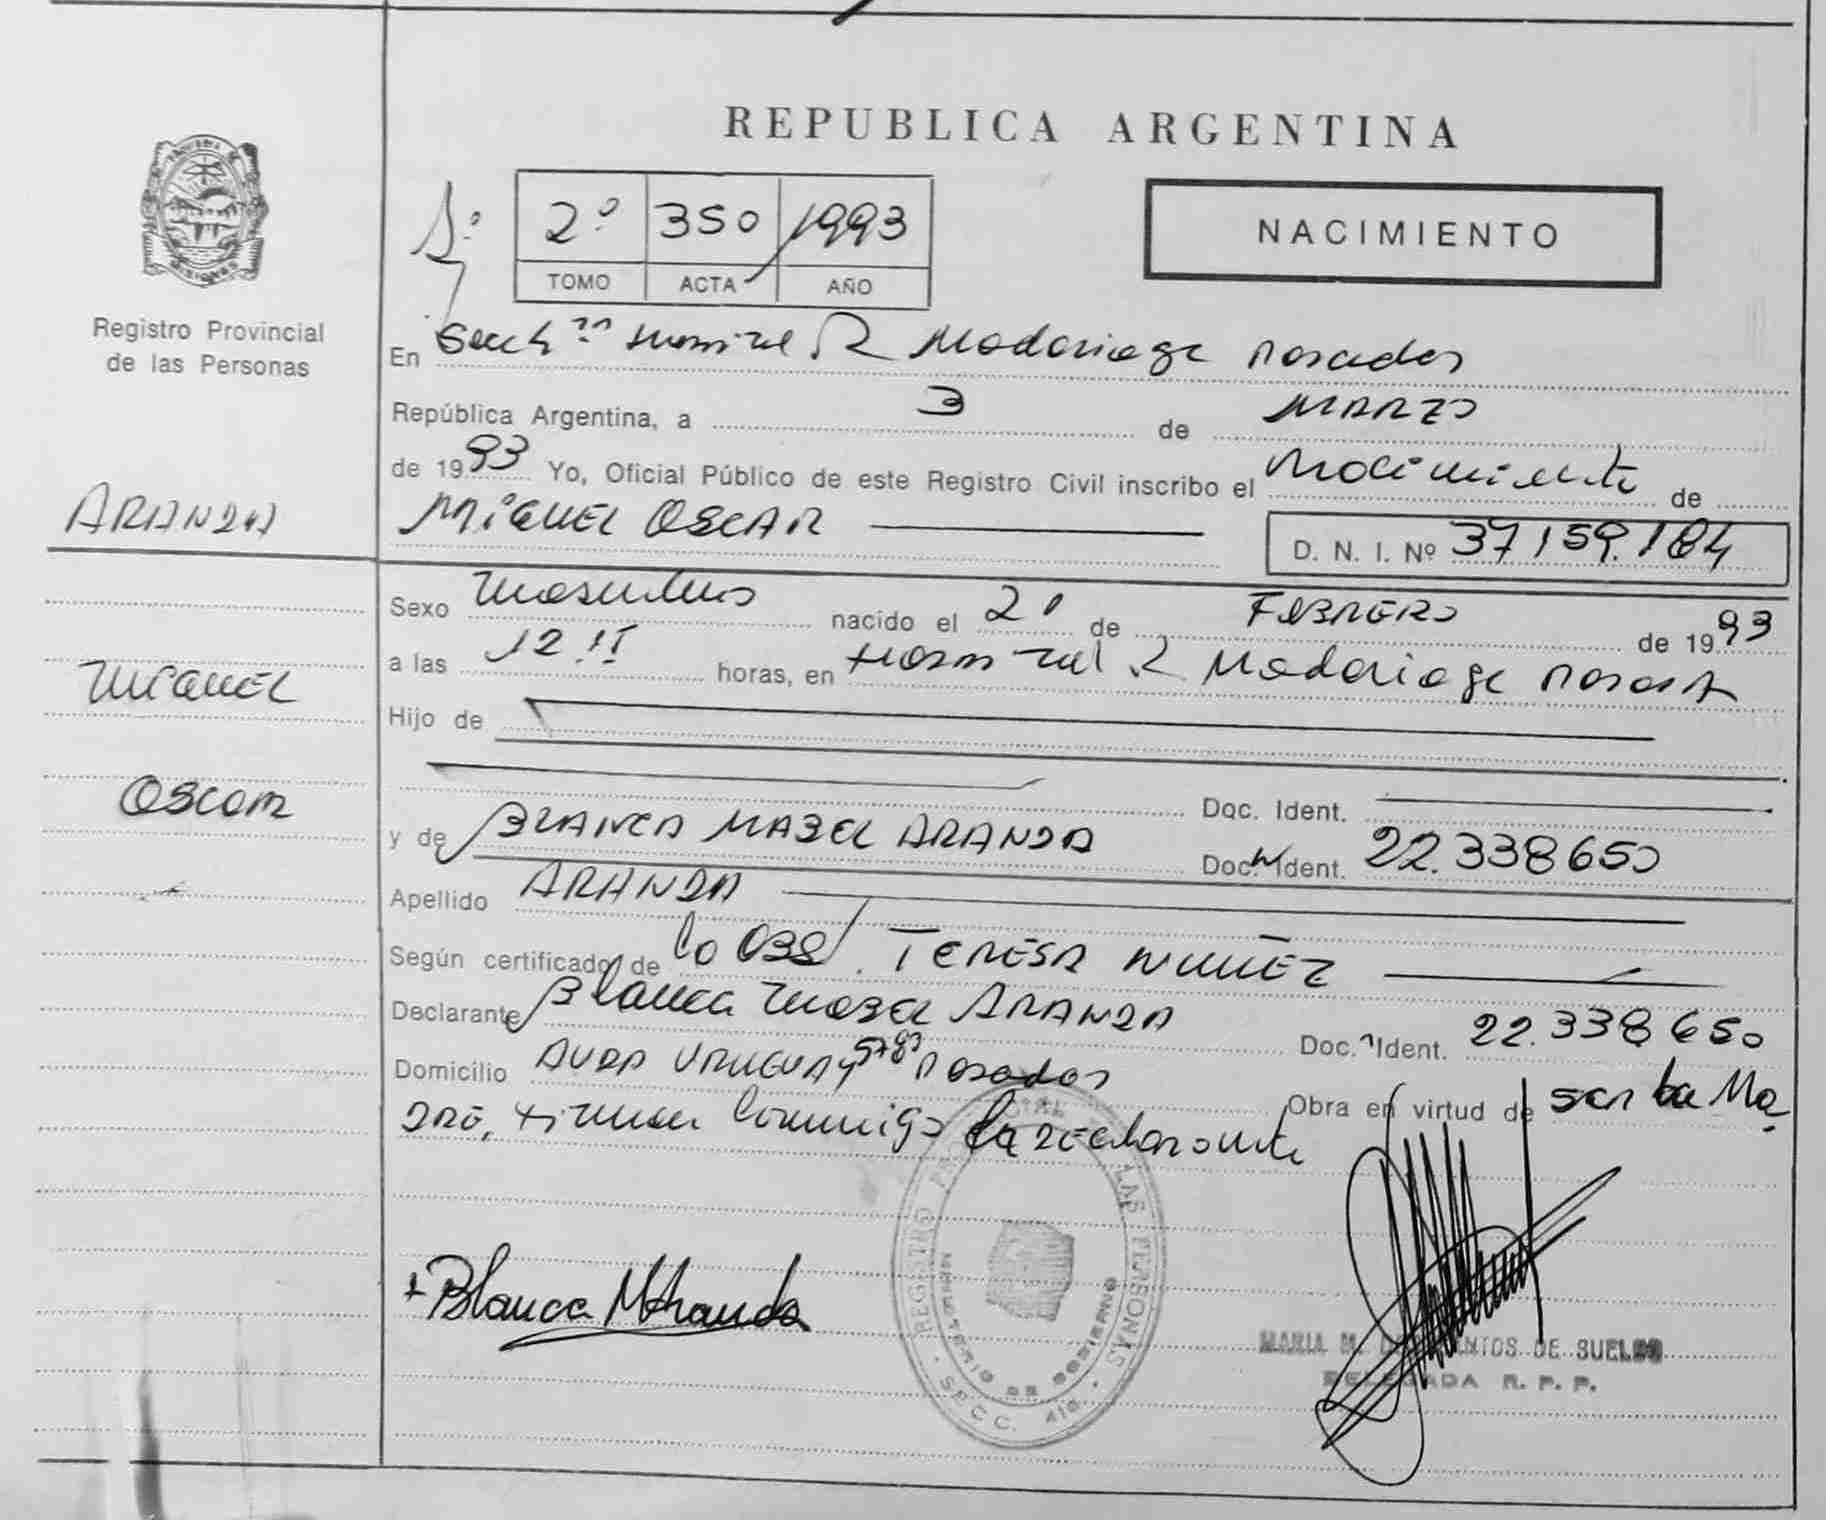 REPUBLICA ARGENTINA
2º 350 1993
TOMO ACTA AÑO
NACIMIENTO
Registro Provincial
de las Personas
En R Madariaga Posadas
República Argentina, a 3 de MARZO
de 1993 Yo, Oficial Público de este Registro Civil inscribo el Nacimiento de
ARANDA
MIGUEL OSCAR
D. N. I. Nº 37.159.184
Sexo Masculino nacido el de FEBRERO de 1993
a las 12 horas, en Hospital R Madariaga
MIGUEL
Hijo de
OSCAR
Doc. Ident.
y de BLANCA MABEL ARANDA Doc. Ident. 22.338650
Apellido ARANDA
Según certificado de TERESA NUÑEZ
Declarante Blanca MABEL ARANDA Doc. Ident. 22.338.650
Domicilio AVDA URUGUAY Posadas
Obra en virtud de ser la Ma
dre, firman conmigo la declarante
REGISTRO LAS PERSONAS
MINISTERIO DE GOBIERNO
SECC.
Blanca M Aranda
MARIA M. DE SUELDO
DELEGADA R. P. P.